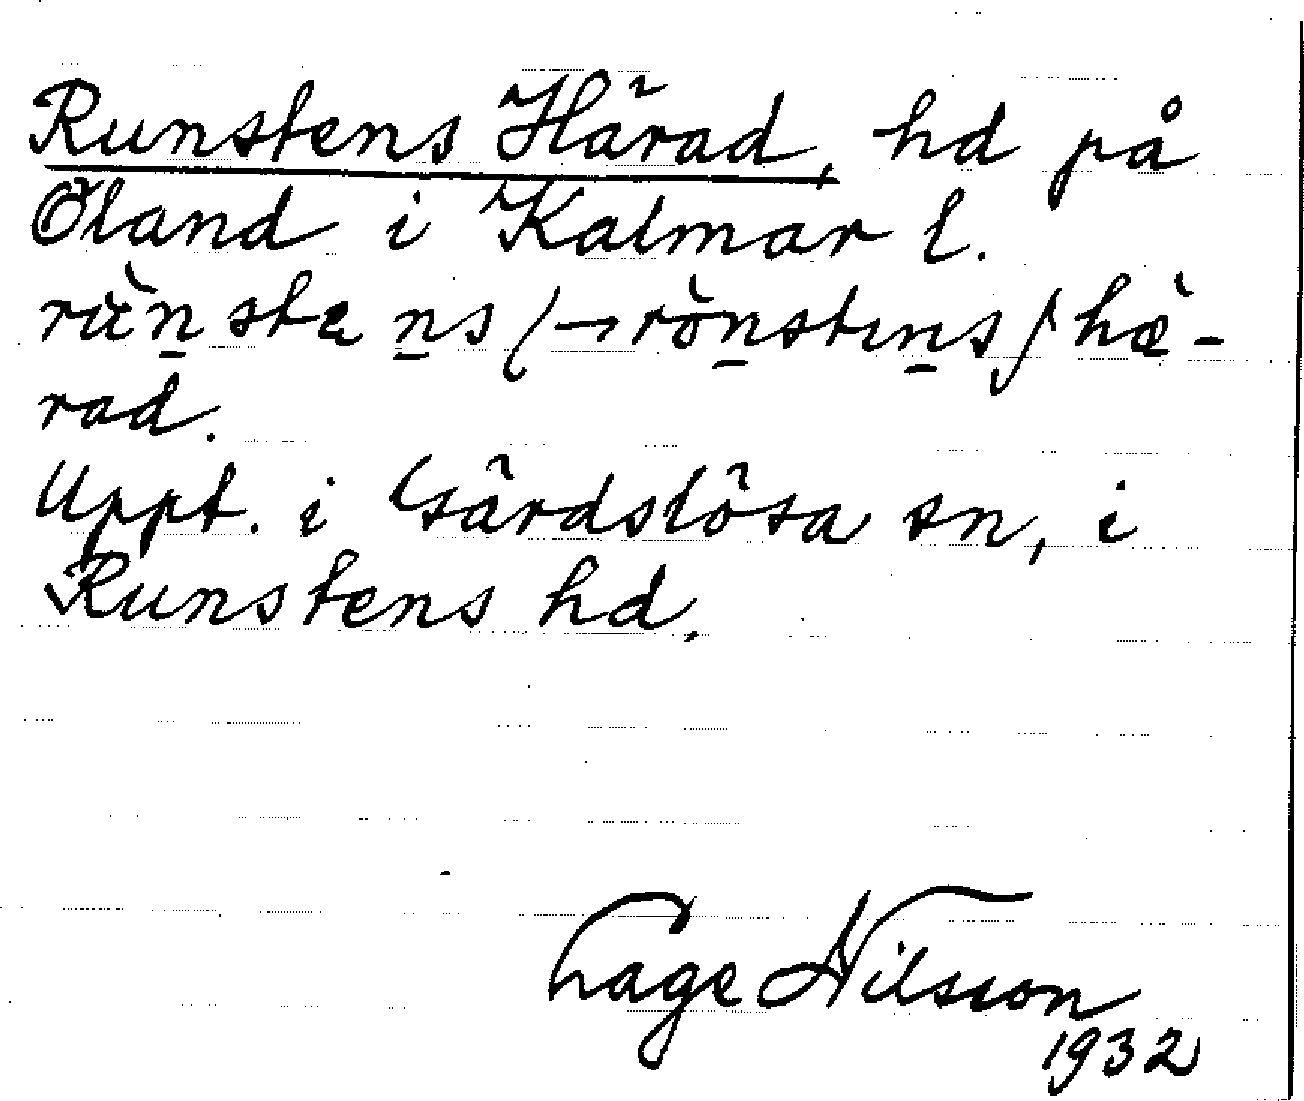 Runstens Härad, hd på
Öland i Kalmar l.
(→rö̀n̲stın̲s) hæ̀-
rad.
Uppt. i Gärdslösa sn, i
Runstens hd.
Nilsson
1932